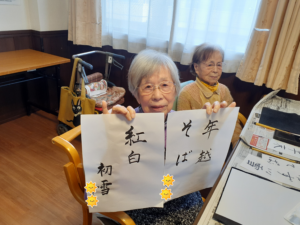 年越
そば
紅白
初雪